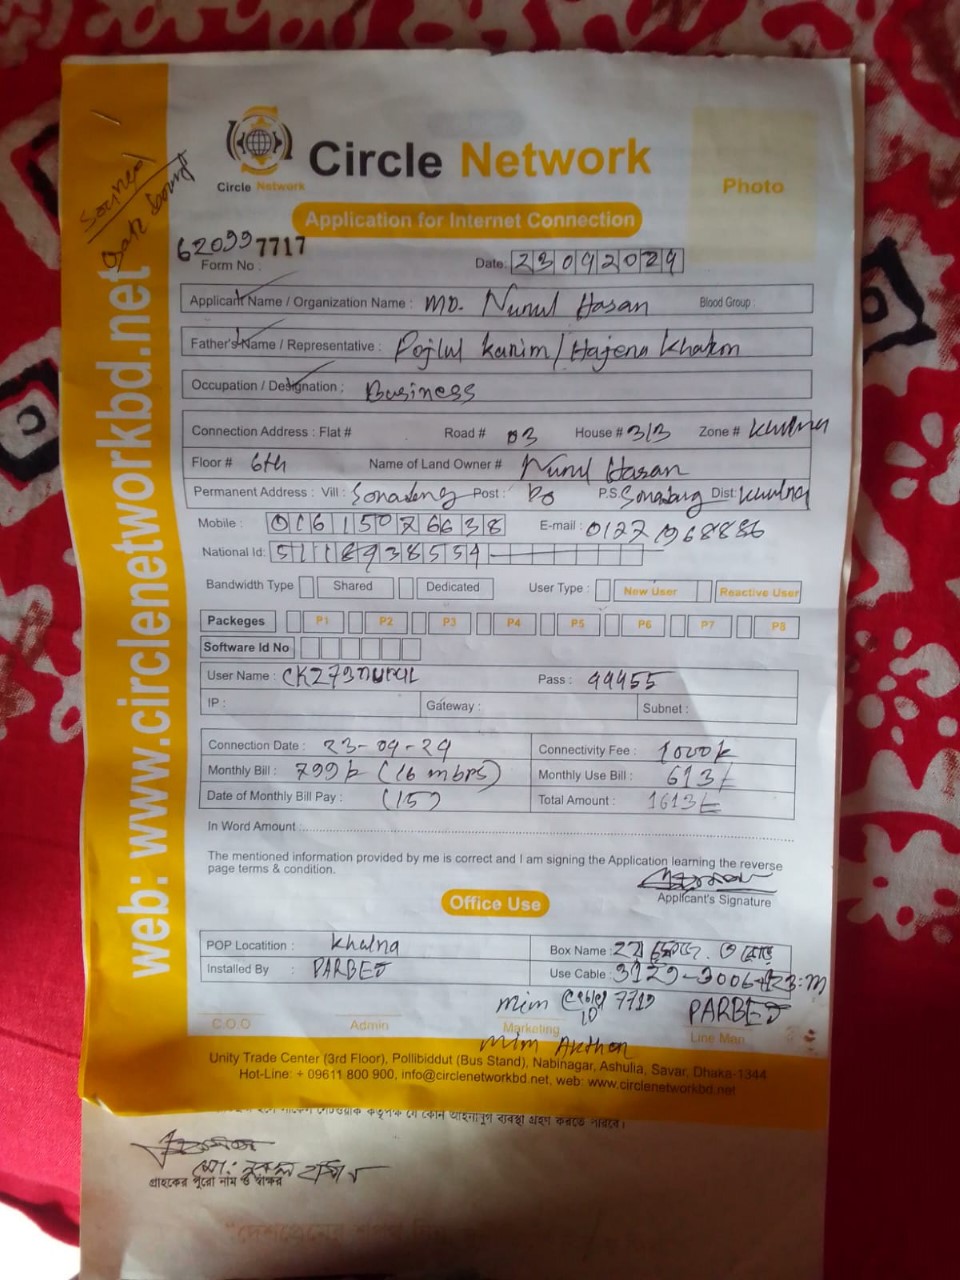 Circle Network
Circle Network
Photo
Application for Internet Connection
7717
Form No :
Date: 23092024
Applicant Name / Organization Name : MD. Nurul Hasan Blood Group :
Father's Name / Representative : Pojlul Karim / Hajera Khatun
Occupation / Designation : Business
Connection Address : Flat # Road # 03 House # 313 Zone # Khulna
Floor # 6th Name of Land Owner # Nurul Hasan
Permanent Address : Vill : Post : Po P.S. Dist: Khulna
Mobile : 01615026638 E-mail :
National Id: 5118938554
Bandwidth Type Shared Dedicated User Type : New User Reactive User
Packeges P1 P2 P3 P4 P5 P6 P7 P8
Software Id No
User Name : CK273nurul Pass : 44455
IP : Gateway : Subnet :
Connection Date : 23-09-24 Connectivity Fee : 1000t
Monthly Bill : 799t (16 mbps) Monthly Use Bill : 613t
Date of Monthly Bill Pay : (15) Total Amount : 1613t
In Word Amount :
The mentioned information provided by me is correct and I am signing the Application learning the reverse
page terms & condition.
Applicant's Signature
Office Use
POP Locatition : Khulna Box Name :
Installed By : PARBEJ Use Cable :
Mim 7717 PARBEJ
C.O.O Admin Marketing Line Man
Mim Akther
Unity Trade Center (3rd Floor), Pollibiddut (Bus Stand), Nabinagar, Ashulia, Savar, Dhaka-1344
Hot-Line: + 09611 800 900, info@circlenetworkbd.net, web: www.circlenetworkbd.net
web: www.circlenetworkbd.net
কর্তৃপক্ষ যে কোন আইনানুগ ব্যবস্থা গ্রহণ করতে পারবে।
মো: নুরুল হাসান
গ্রাহকের পুরো নাম ও স্বাক্ষর